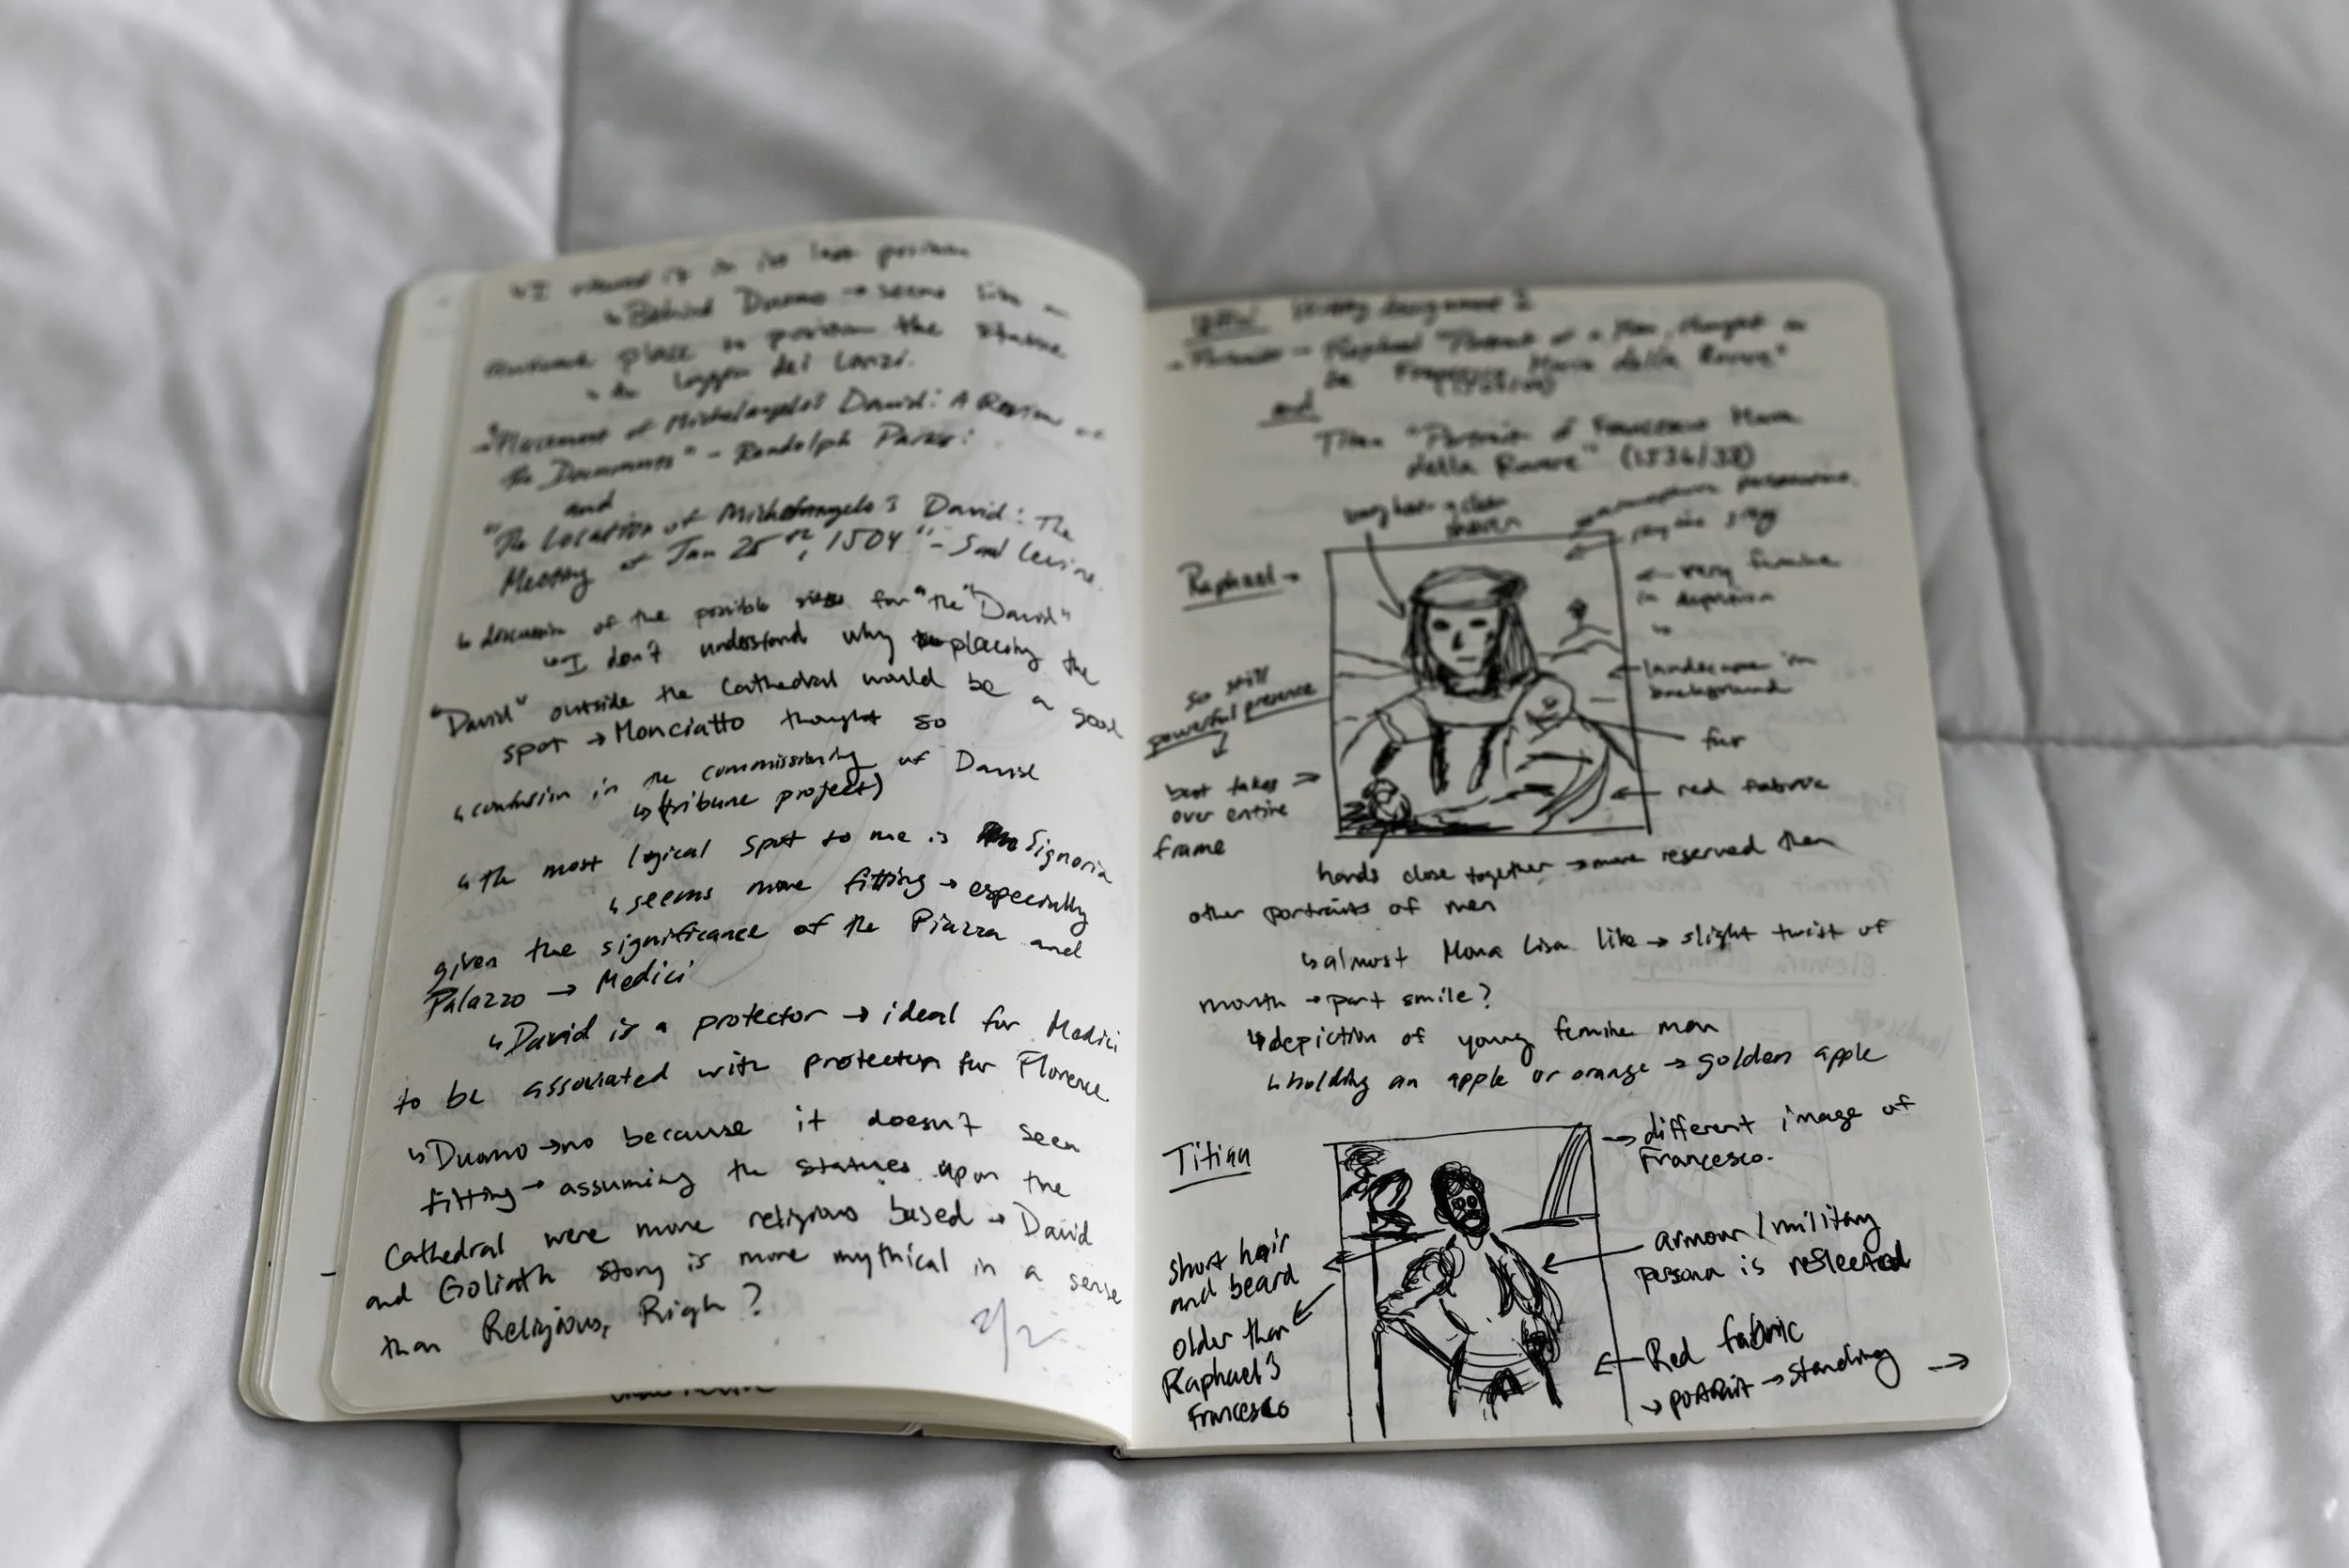 ↳ I viewed it in its last position
↳ Behind Duomo → seems like
place to position the statue
Loggia del Lanzi.
→ "Placement of Michelangelo's David: A Review
the Documents" - Randolph Parks:
and
"The Location of Michelangelo's David: The
Meeting of Jan 25th, 1504" - Saul Levine.
↳ discussion of the possible sites for "the "David"
↳ I don't understand why placing the
"David" outside the Cathedral would be a good
spot → Monciatto thought so
↳ confusion in the commissioning of David
↳ (tribune project)
↳ the most logical spot to me is Signoria
↳ seems more fitting → especially
given the significance of the Piazza and
Palazzo → Medici
↳ David is a protector → ideal for Medici
to be associated with protection for Florence
↳ Duomo → no because it doesn't seem
fitting → assuming the statues upon the
Cathedral were more religious based → David
and Goliath story is more mythical in a sense
than Religious, Righ?
2/2
- Raphael "Portrait of a Man, thought to
be Francesco Maria della Rovere"
and
Titian "Portrait of Francesco Maria
della Rovere" (1536/38)
long hair + clean
shaven
Raphael →
← very femine
in depiction
← landscape in
background
so still
powerful presence
fur
bust takes →
over entire
frame
← red fabric
hands close together → more reserved than
other portraits of men
↳ almost Mona Lisa like → slight twist of
mouth → part smile?
↳ depiction of young femine man
↳ holding an apple or orange → golden apple
Titian
→ different image of
Francesco.
short hair
and beard
older than
Raphael's
Francesco
armour/military
persona is reflected
← Red fabric
↳ portrait → standing →